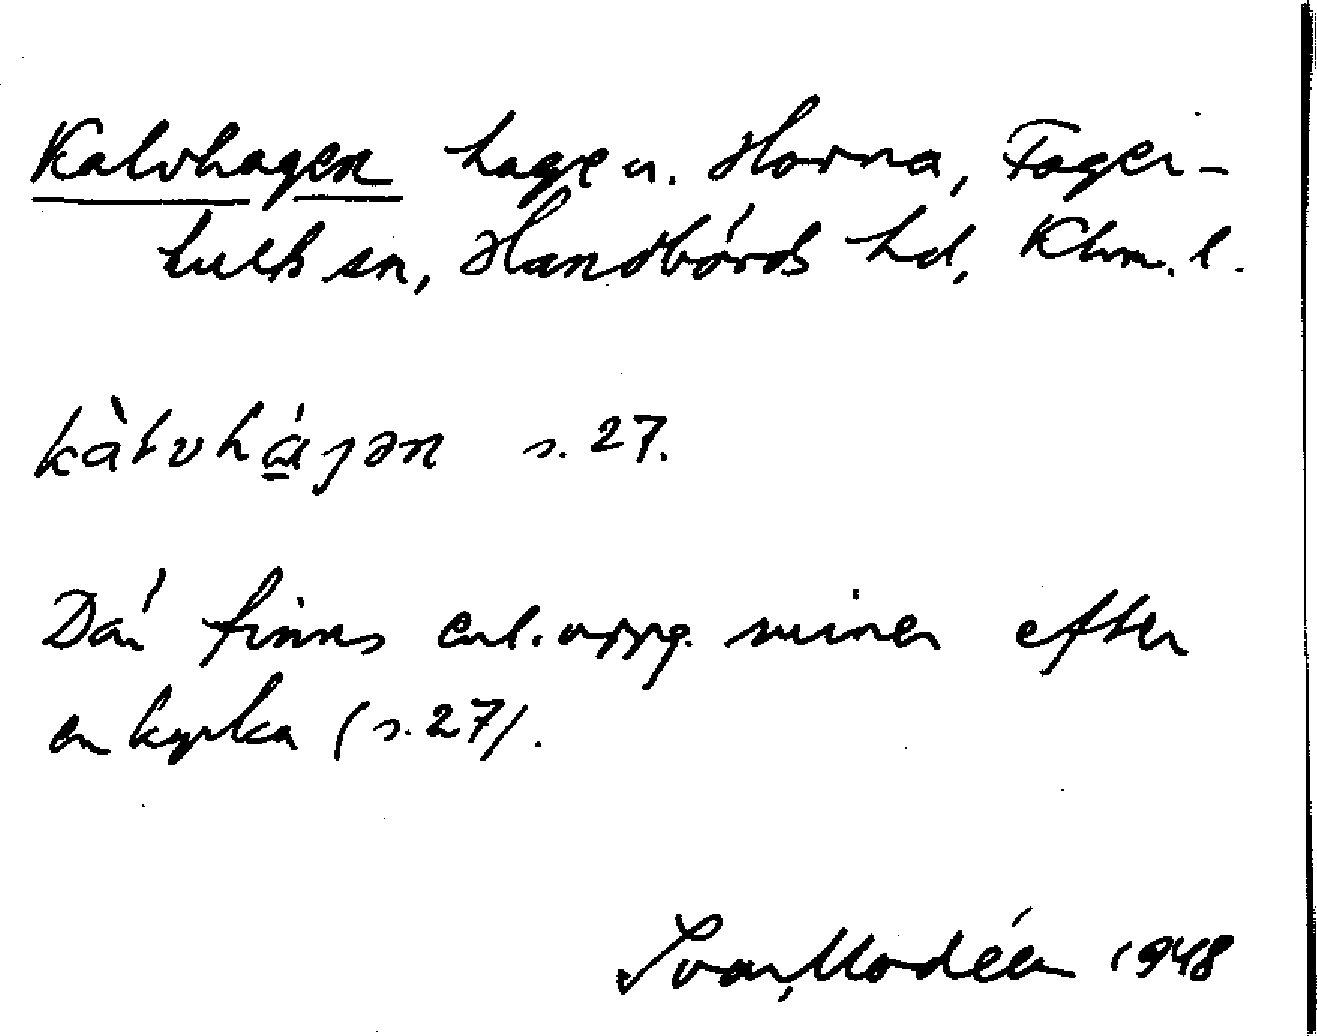 Kalvhagen hage u. Horna, Fager-
hults sn, Handbörds hd, Klm. l.
kàlvhágən s. 27.
Där finns enl. uppg. ruiner efter
en kyrka (s. 27).
Ivar Modéer 1948